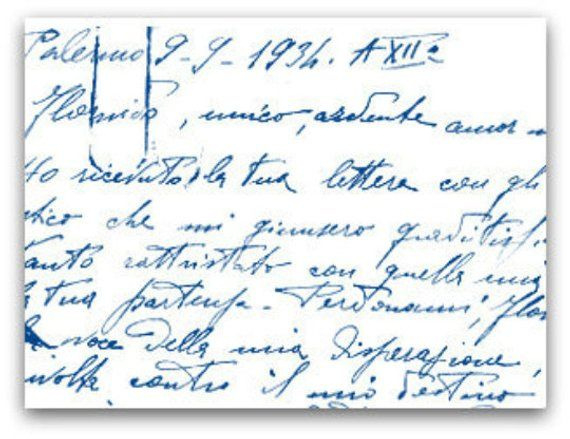 Palermo 9-9-1934. A XIIº
, unico, ardente amor m
Ho ricevuto la tua lettera con gli
tico che mi giunsero graditissi
tanto rattristato con quella mia
la tua partenza - Perdonami,
la voce della mia disperazione,
rivolta contro il mio destino